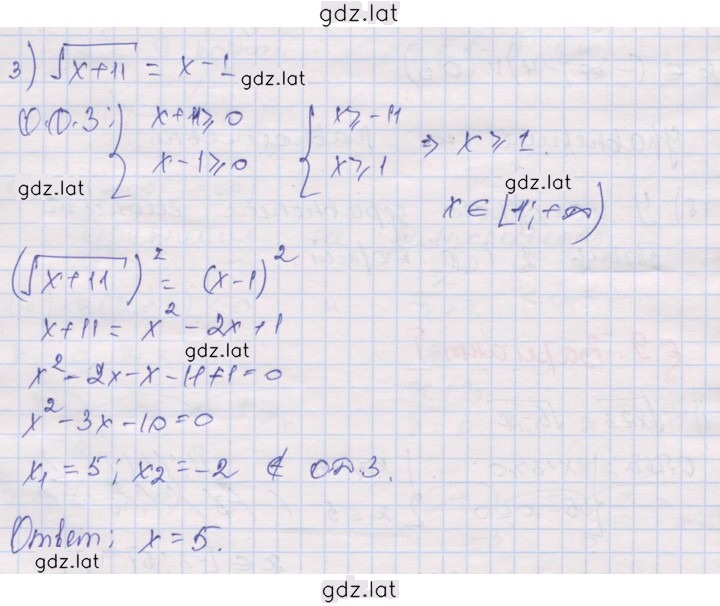 gdz.lat
3) √x+11 = x-1
gdz.lat
О.О.З: { x+11⩾0 { x⩾-11 ⇒ x⩾1.
x-1⩾0 x⩾1
gdz.lat
gdz.lat
x∈[1; +∞)
(√x+11)² = (x-1)²
x+11 = x² - 2x + 1
gdz.lat
x² - 2x - x - 11 + 1 = 0
x² - 3x - 10 = 0
x₁ = 5; x₂ = -2 ∉ О.О.З.
Ответ: x = 5.
gdz.lat
gdz.lat